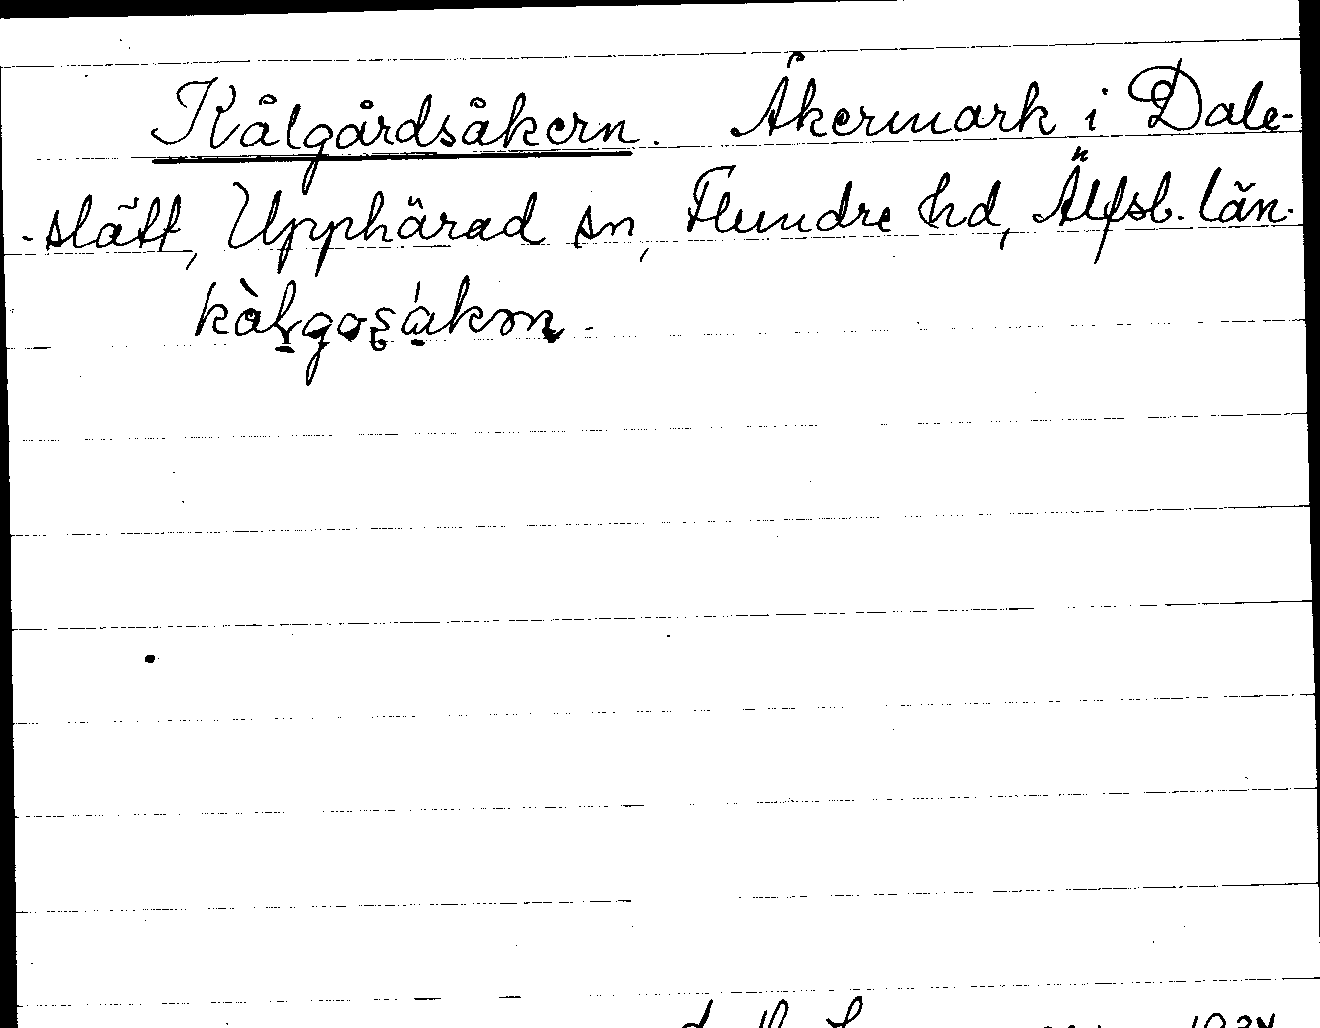 Kålgårdsåkern. Åkermark i Dale-
-slätt, Upphärad sn, Flundre hd, Älfsb. län.